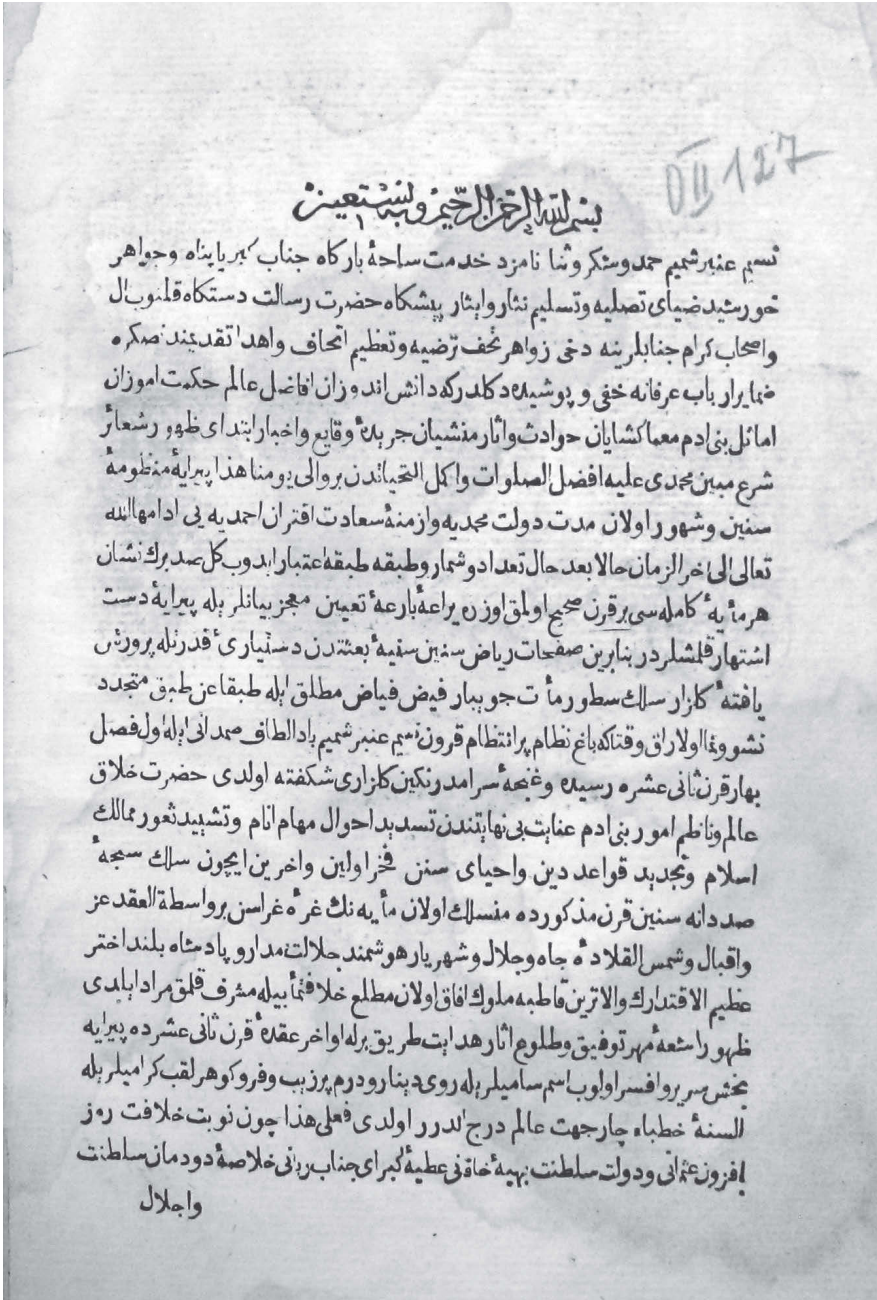 بسم الله الرحمن الرحيم وبه نستعين
OII 127
نسيم عنبر شميم حمد وشكر وثنا نامزد خدمت ساحهٔ باركاه جناب كبريا پناه وجواهر
خورشيد ضياى تصليه وتسليم نثار وايثار پيشكاه حضرت رسالت دستكاه قلنوب ال
واصحاب كرام جنابلرينه دخى زواهر تحف ترضيه وتعظيم اتحاف واهدا تقديمندنصكره
ضماير ارباب عرفانه خفى و پوشيده دكلدركه دانش اندوزان افاضل عالم حكمت اموزان
اماثل بنى ادم معما كشايان حوادث واثار منشيان جريدهٔ وقايع واخبار ابتداى ظهور شعائر
شرع مبين محمدى عليه افضل الصلوات واكمل التحياتدن بروالى يومنا هذا پيرايهٔ منظومهٔ
سنين وشهور اولان مدت دولت محمديه وازمنهٔ سعادت اقتران احمديه يى ادامها الله
تعالى الى اخر الزمان حالا بعد حال تعداد وشمار وطبقه طبقه اعتبار ايدوب كل صد برك نشان
هر مأيهٔ كامله سى برقرن صحيح اولمق اوزره يراعهٔ بارعهٔ تعيين معجز بيانلريله پيرايهٔ دست
اشتهار قلمشلردر بنابرين صفحات رياض سنين سنيهٔ بعثتدن دستيارىٔ قدرتله پرورش
يافتهٔ كلزار سلك سطور مأت جويبار فيض فياض مطلق ايله طبقا عن طبق متجدد
نشوونما اولاراق وقتاكه باغ نظام پر انتظام قرون نسيم عنبر شميم باد الطاف صمدانى ايله اول فصل
بهار قرن ثانى عشره رسيده وغنچهٔ سرامد رنكين كلزارى شكفته اولدى حضرت خلاق
عالم وناظم امور بنى ادم عنايت بى نهايتندن تسديد احوال مهام انام وتشييد ثغور ممالك
اسلام وتجديد قواعد دين واحياى سنن فخر اولين واخرين ايچون سلك سبحهٔ
صددانه سنين قرن مذكورده منسلك اولان مأيه نك غرهٔ غراسن برواسطة العقد عز
واقبال وشمس القلادهٔ جاه وجلال وشهريار هوشمند جلالت مدار و پادشاه بلند اختر
عظيم الاقتدارك والاترين قاطبه ملوك افاق اولان مطلع خلافتمأبيله مشرف قلمق مراد ايلدى
ظهور اشعهٔ مهر توفيق وطلوع اثار هدايت طريق برله اواخر عقدهٔ قرن ثانى عشرده پيرايه
بخش سرير وافسر اولوب اسم ساميلر يله روى دينار ودرم پرزيب وفر وكوهر لقب كراميلر يله
السنهٔ خطباء چارجهت عالم درج الدرر اولدى فعلى هذا چون نوبت خلافت روز
افزون عثمانى ودولت سلطنت بهيهٔ خاقانى عطيهٔ كبراى جناب ربانى خلاصهٔ دودمان سلطنت
واجلال